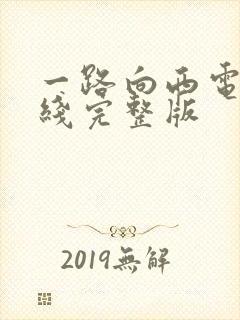 一路向西電
綫完整版
2019無解